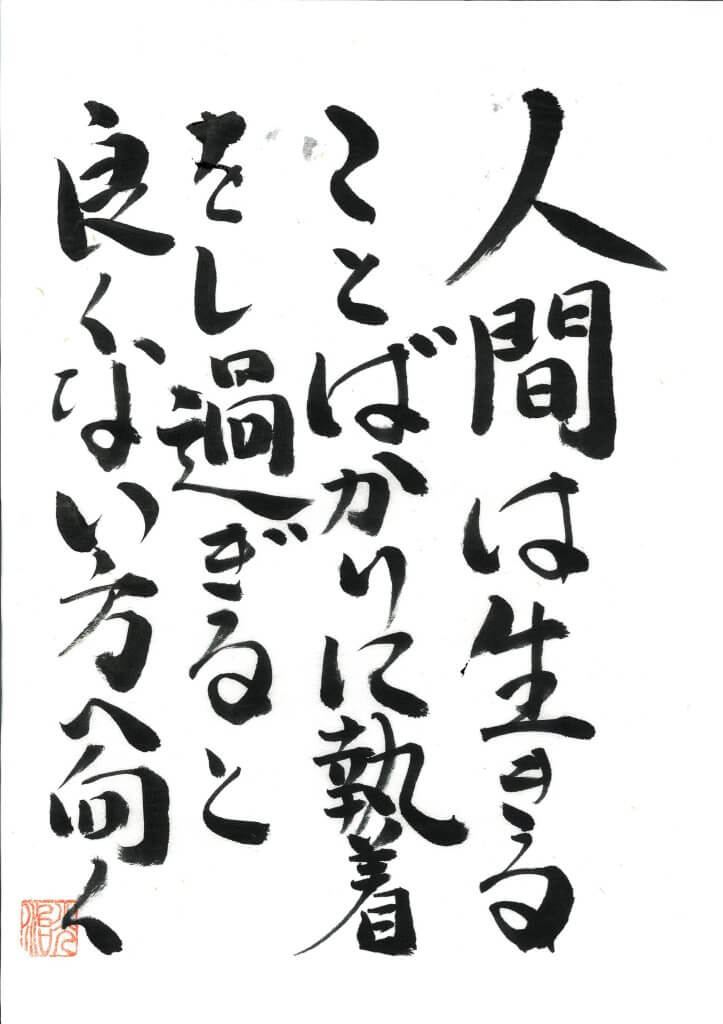 人間は生きる
ことばかりに執着
をし過ぎると
良くない方へ向く